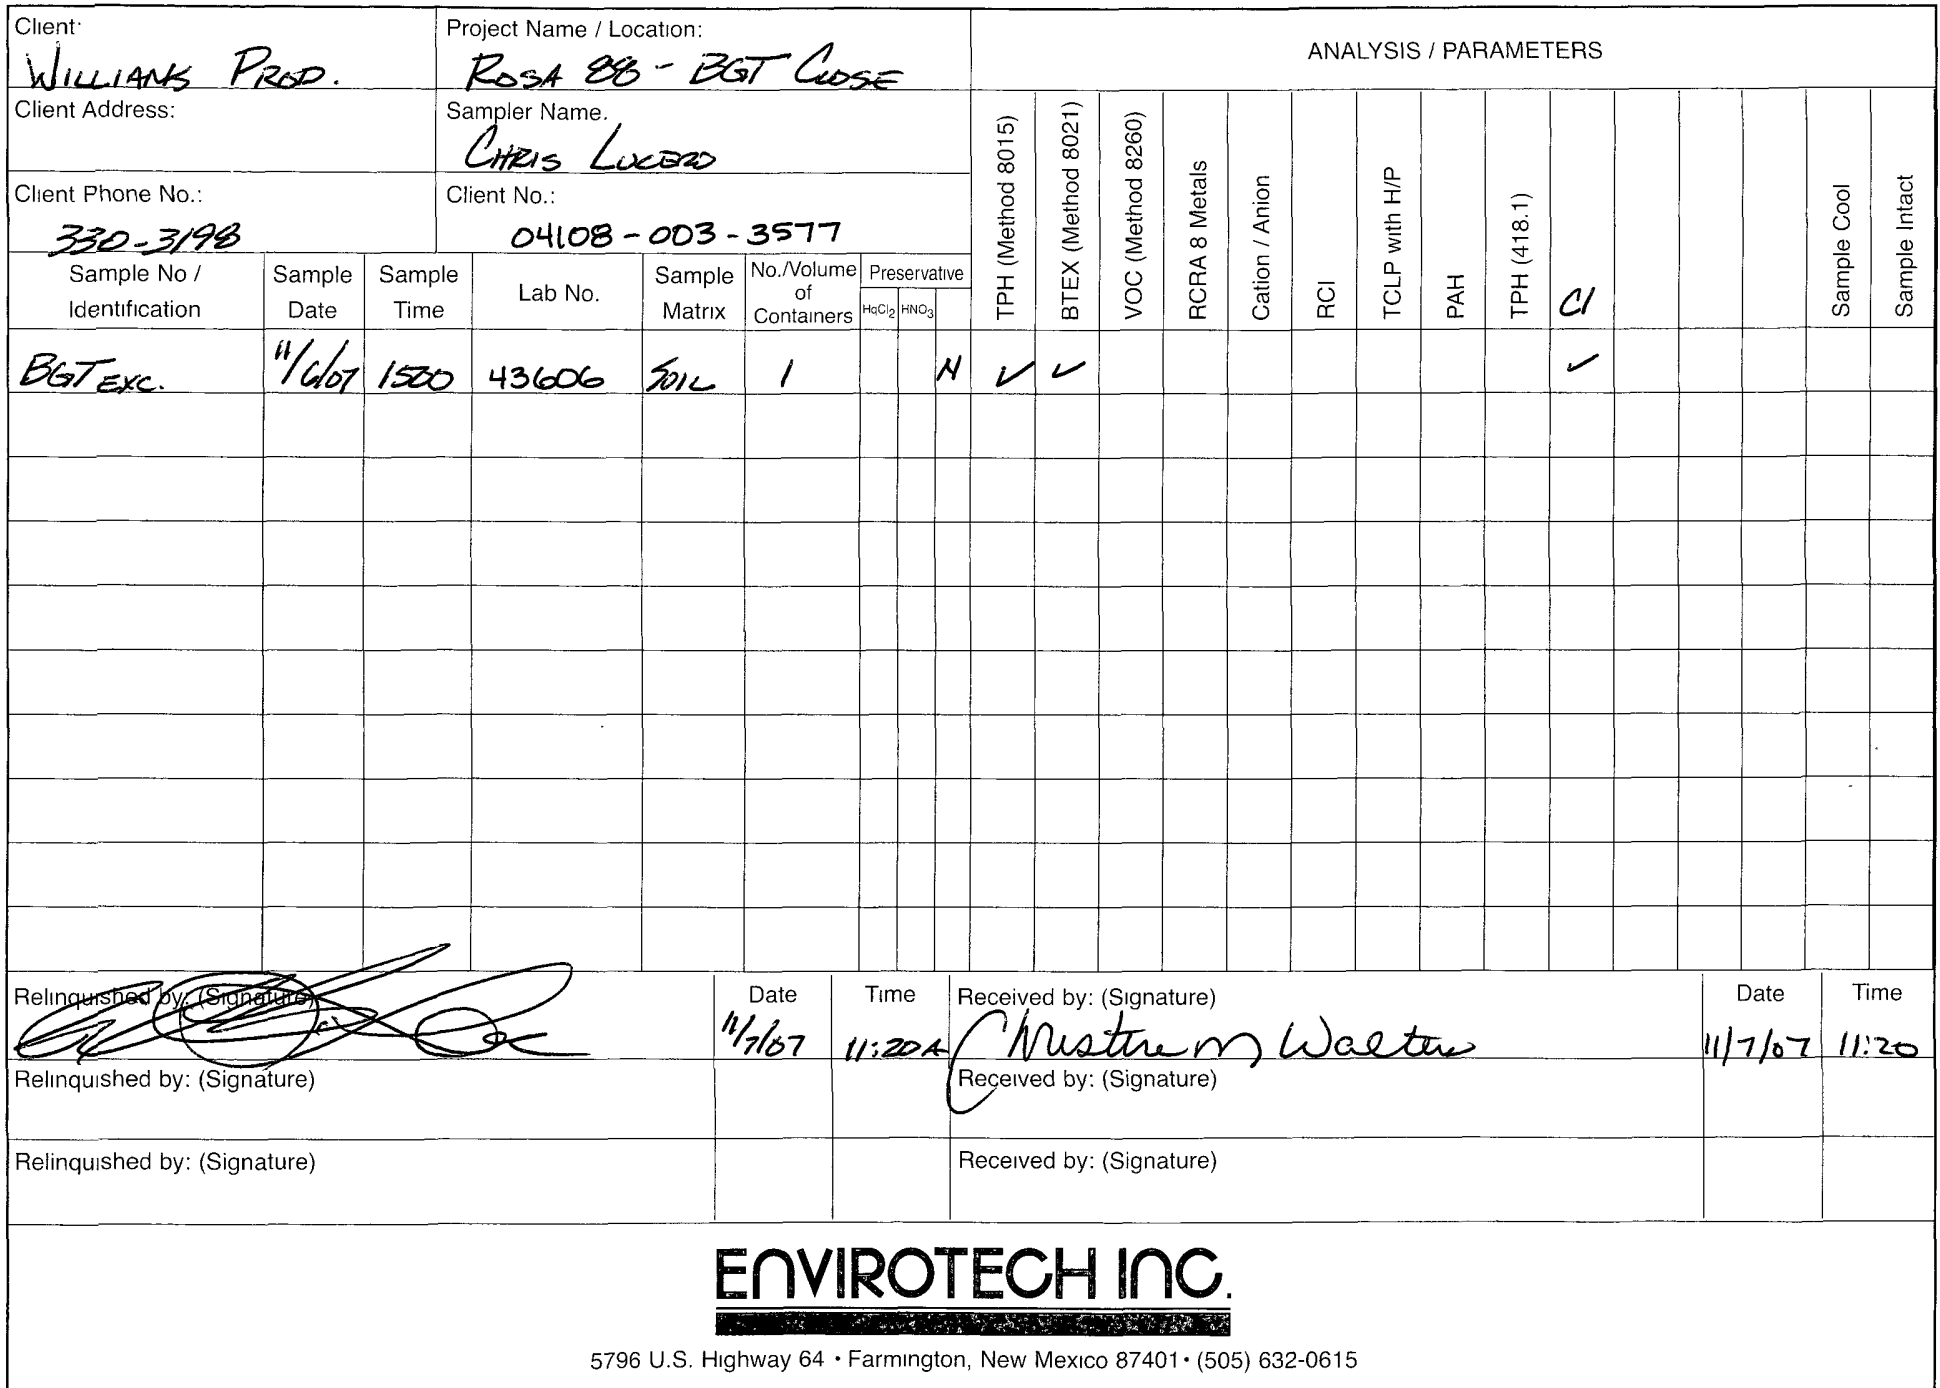 Client:
WILLIAMS PROD.
Project Name / Location:
ROSA 88 - BGT CLOSE
ANALYSIS / PARAMETERS
Client Address:
Sampler Name.
CHRIS LUCERO
Client Phone No.:
330-3198
Client No.:
04108-003-3577
Sample No / Identification
Sample Date
Sample Time
Lab No.
Sample Matrix
No./Volume of Containers
Preservative
HgCl2
HNO3
TPH (Method 8015)
BTEX (Method 8021)
VOC (Method 8260)
RCRA 8 Metals
Cation / Anion
RCI
TCLP with H/P
PAH
TPH (418.1)
Cl
Sample Cool
Sample Intact
BGT EXC. 11/6/07 1500 43606 SOIL 1 N ✓ ✓ ✓
Relinquished by: (Signature)
Date
11/7/07
Time
11:20A
Received by: (Signature)
Christine M Walters
Date
11/7/07
Time
11:20
Relinquished by: (Signature)
Received by: (Signature)
Relinquished by: (Signature)
Received by: (Signature)
ENVIROTECH INC.
5796 U.S. Highway 64 • Farmington, New Mexico 87401 • (505) 632-0615